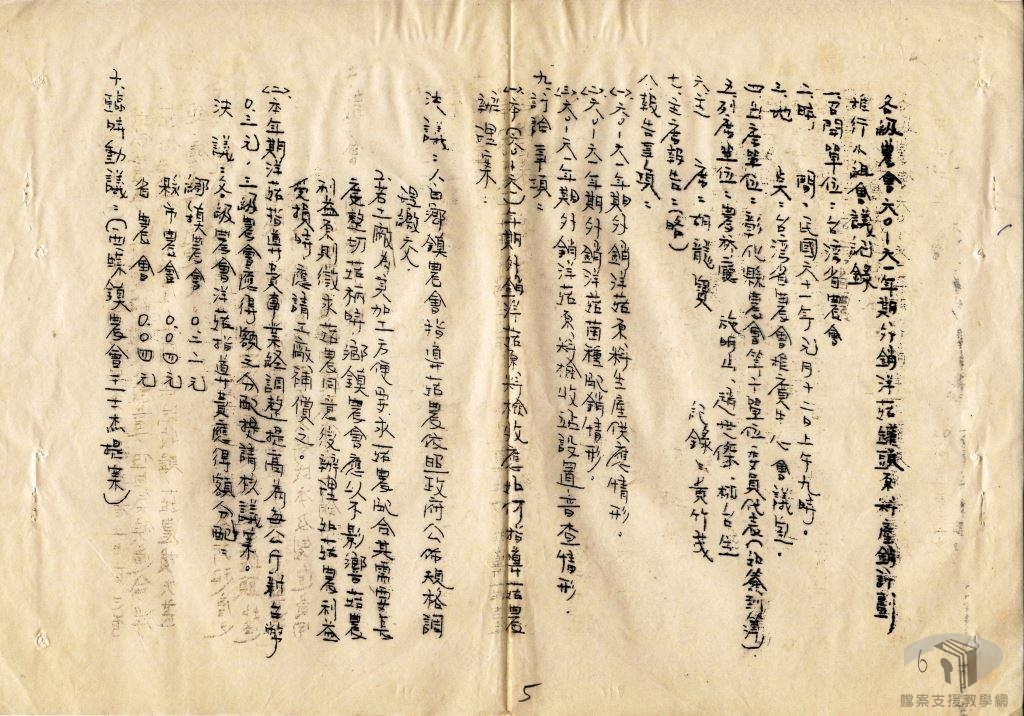 各級農會六〇-六一年期外銷洋菇罐頭原料產銷計劃
推行小組會議記錄
一召開單位：台湾省農會
二時　間：民國六十一年元月十二日上午九時。
三地　點：台湾省農會推廣中心會議室。
四出席單位：彰化縣農會等十單位委員代表(如簽到簿)
五列席單位：農林廳　施明山、趙世傑、林占生
六主　席：胡龍寶　　　記錄：黃竹茂
七主席報告：(略)
八報告事項：
(一)六〇-六一年期外銷洋菇原料生產供應情形
(二)六〇-六一年期外銷洋菇菌種配銷情形。
(三)六〇-六一年期外銷洋菇原料檢收站設置普查情形．
九討論事項：
(一)本(六〇-六一)年期外銷洋菇原料檢收應如何指導菇農
辦理案：
決議：1.由鄉鎮農會指導菇農依照政府公佈規格調
理繳交
2.若工廠為其加工方便要求菇農配合其需要長
度整切菇柄時，鄉鎮農會應以不影響菇農
利益原則徵求菇農同意後辦理如菇農利益
受損時，應請工廠補償之。
(二)本年期洋菇指導員事業經調整提高為每公斤新台幣
〇.三元，三級農會應得額之分配提請核議案。
決　議：各級農會洋菇指導員費應得額分配：
鄉鎮農會　〇.二二元
縣市農會　〇.〇四元
省農會　〇.〇四元
十、臨時動議：(西螺鎮農會王士杰提案)
5
6
檔案支援教學網